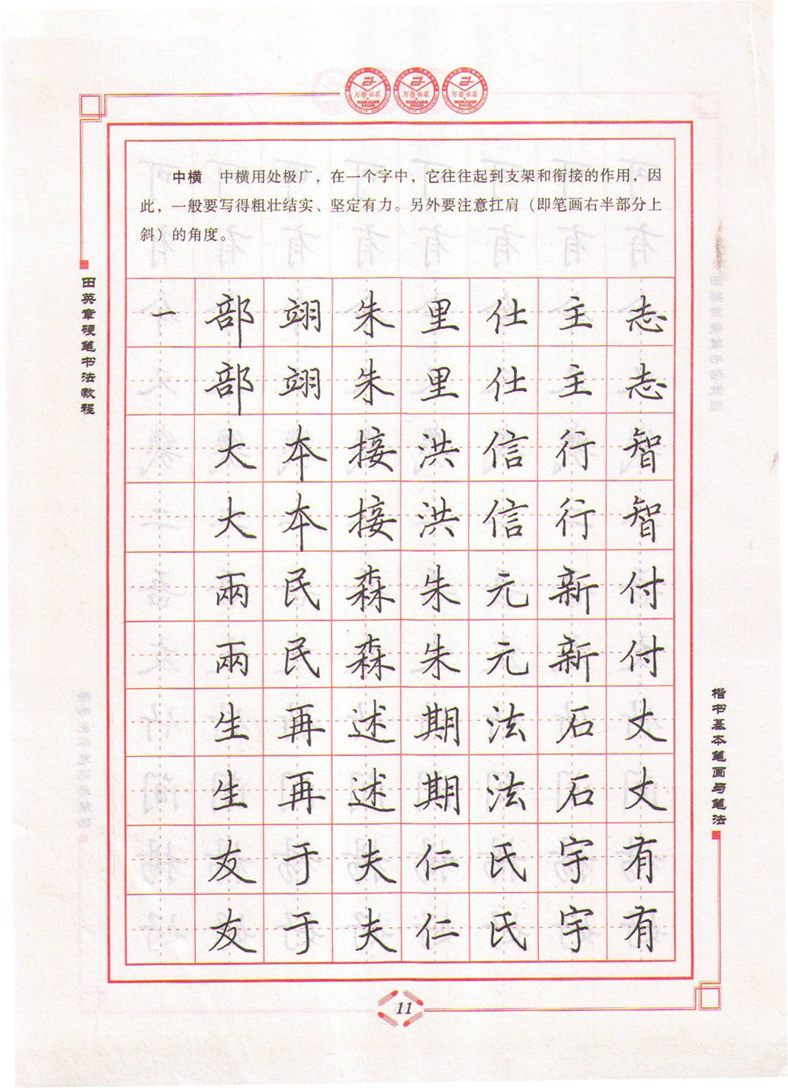 中横 中横用处极广，在一个字中，它往往起到支架和衔接的作用，因
此，一般要写得粗壮结实、坚定有力。另外要注意扛肩（即笔画右半部分上
斜）的角度。
田英章硬笔书法教程
一 部 翊 朱 里 仕 主 志
部 翊 朱 里 仕 主 志
大 本 接 洪 信 行 智
大 本 接 洪 信 行 智
兩 民 森 朱 元 新 付
兩 民 森 朱 元 新 付
生 再 述 期 法 石 丈
生 再 述 期 法 石 丈
友 于 夫 仁 氏 宇 有
友 于 夫 仁 氏 宇 有
楷书基本笔画与笔法
11